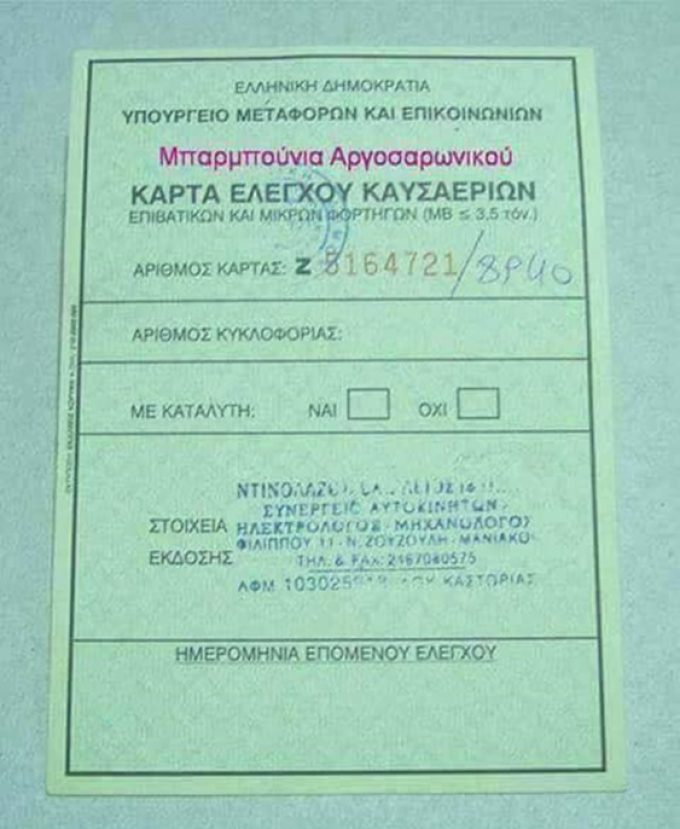 ΕΛΛΗΝΙΚΗ ΔΗΜΟΚΡΑΤΙΑ
ΥΠΟΥΡΓΕΙΟ ΜΕΤΑΦΟΡΩΝ ΚΑΙ ΕΠΙΚΟΙΝΩΝΙΩΝ
Μπαρμπούνια Αργοσαρωνικού
ΚΑΡΤΑ ΕΛΕΓΧΟΥ ΚΑΥΣΑΕΡΙΩΝ
ΕΠΙΒΑΤΙΚΩΝ ΚΑΙ ΜΙΚΡΩΝ ΦΟΡΤΗΓΩΝ (ΜΒ ≤ 3,5 τόν.)
ΑΡΙΘΜΟΣ ΚΑΡΤΑΣ: Z 5164721
ΑΡΙΘΜΟΣ ΚΥΚΛΟΦΟΡΙΑΣ:
ΜΕ ΚΑΤΑΛΥΤΗ: ΝΑΙ ΟΧΙ
ΣΥΝΕΡΓΕΙΟ ΑΥΤΟΚΙΝΗΤΩΝ
ΣΤΟΙΧΕΙΑ ΗΛΕΚΤΡΟΛΟΓΟΣ - ΜΗΧΑΝΟΛΟΓΟΣ
ΕΚΔΟΣΗΣ ΦΙΛΙΠΠΟΥ 11 - Ν. ΖΟΥΖΟΥΛΗ - ΜΑΝΙΑΚΟΙ
ΤΗΛ. & FAX: 2467080575
ΑΦΜ ΚΑΣΤΟΡΙΑΣ
ΗΜΕΡΟΜΗΝΙΑ ΕΠΟΜΕΝΟΥ ΕΛΕΓΧΟΥ